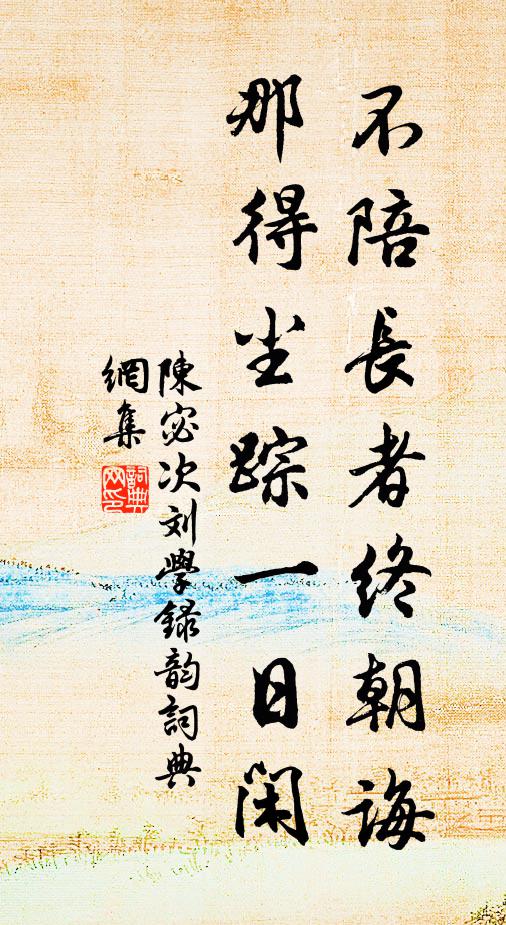 不陪長者終朝誨
那得尘踪一日閑
陳宓次刘學録韵詞典
網集
詞典
网印